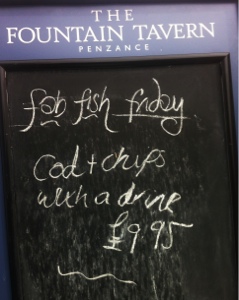 THE
FOUNTAIN TAVERN
PENZANCE
fab fish friday
Cod + chips
with a drink
£9.95